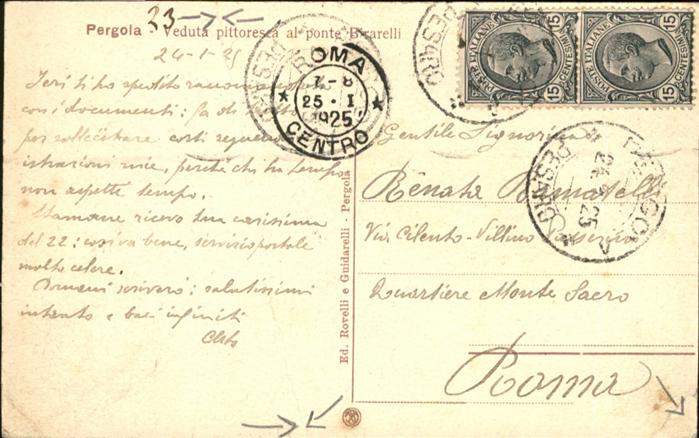 23
Pergola - Veduta pittoresca al ponte Birarelli
24-1-25
Ieri ti ho spedito
con i documenti: fa di
per sollecitare
mie, perché chi ha tempo
non aspetti tempo.
Stamane ricevo tua carissima
del 22: così va bene, servizio postale
molto celere.
Domani scriverò: salutissimi
intanto e baci infiniti
Cleto
Ed. Rovelli e Guidarelli - Pergola
ROMA
7-8
25 · I
1925
CENTRO
POSTE ITALIANE
CENTESIMI
15
POSTE ITALIANE
CENTESIMI
15
PERGOLA
24 1 25
PESARO
Gentile Signorina
Renata
Via Cilento - Villino
Quartiere Monte Sacro
Roma